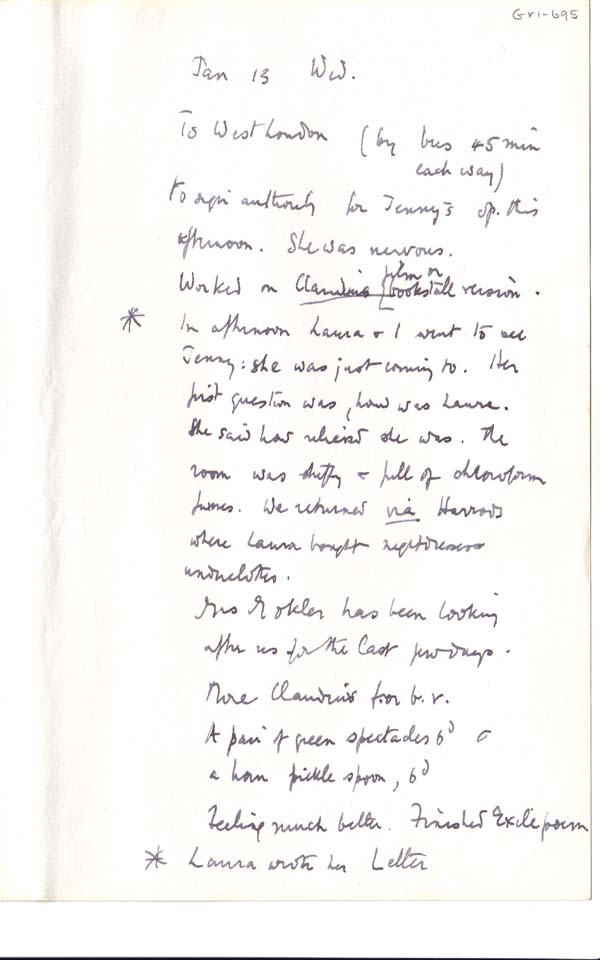 Gri-695
Jan 13 Wed.
To West London (by bus 45 min
each way)
to sign authority for Jenny's op. this
afternoon. She was nervous.
film or
Worked on Claudius bookstall version.
* In afternoon Laura & I went to see
Jenny: she was just coming to. Her
first question was, how was Laura.
She said how relieved she was. The
room was stuffy & full of chloroform
fumes. We returned via Harrods
where Laura bought nightdresses
underclothes.
Mrs has been looking
after us for the last few days.
More Claudius for b.v.
A pair of green spectacles 6d &
a horn pickle spoon, 6d
Feeling much better. Finished Exile poem
* Laura wrote her Letter